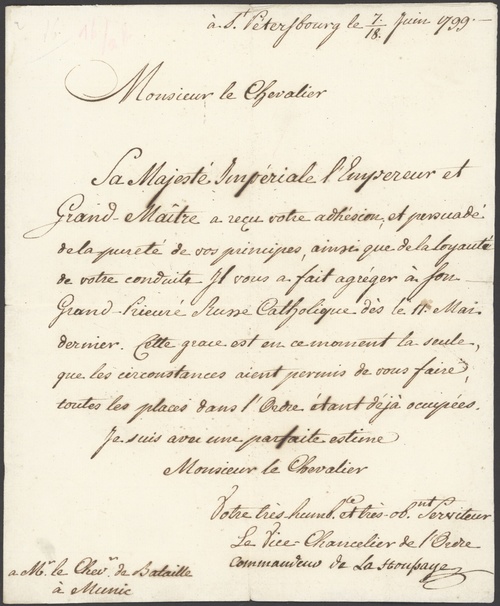 à St. Pétersbourg le 7/18. Juin 1799.
Monsieur le Chevalier
Sa Majesté Impériale l'Empereur et
Grand-Maître a reçu votre adhésion, et persuadé
de la pureté de vos principes, ainsi que de la loyauté
de votre conduite Il vous a fait agréger à son
Grand-Prieuré Russe Catholique dès le 11. Mai
dernier. Cette grace est en ce moment la seule,
que les circonstances aient permis de vous faire,
toutes les places dans l'Ordre étant déjà occupées.
Je suis avec une parfaite estime
Monsieur le Chevalier
Votre très humble. et très-obnt Serviteur
Le Vice-Chancelier de l'Ordre
Commandeur de La Houssaye
a Mr. le Chevr. de Bataille
à Munic